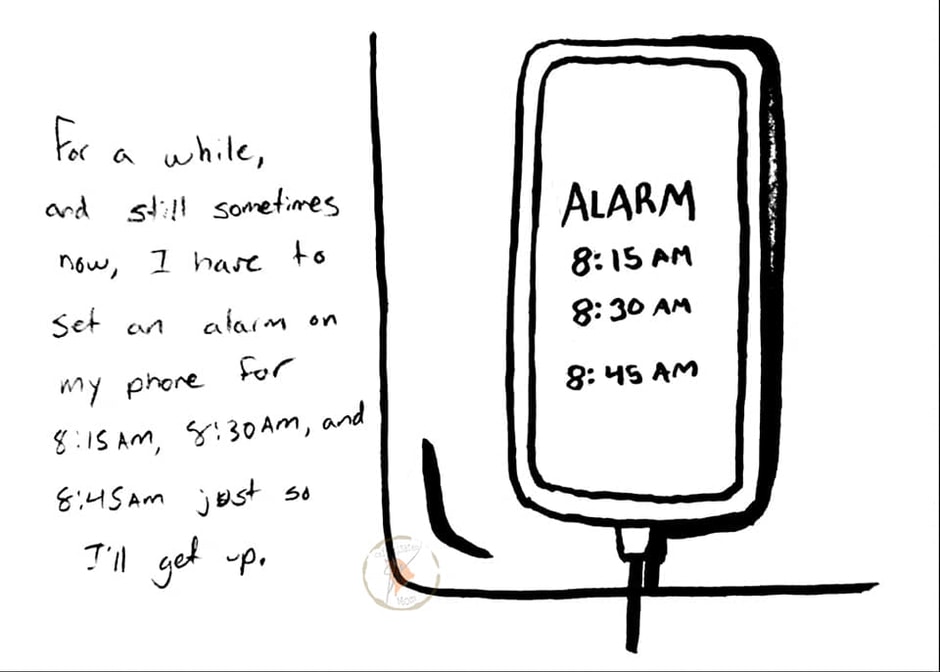 For a while,
and still sometimes
now, I have to
set an alarm on
my phone for
8:15AM, 8:30AM, and
8:45AM just so
I'll get up.
ALARM
8:15 AM
8:30 AM
8:45 AM